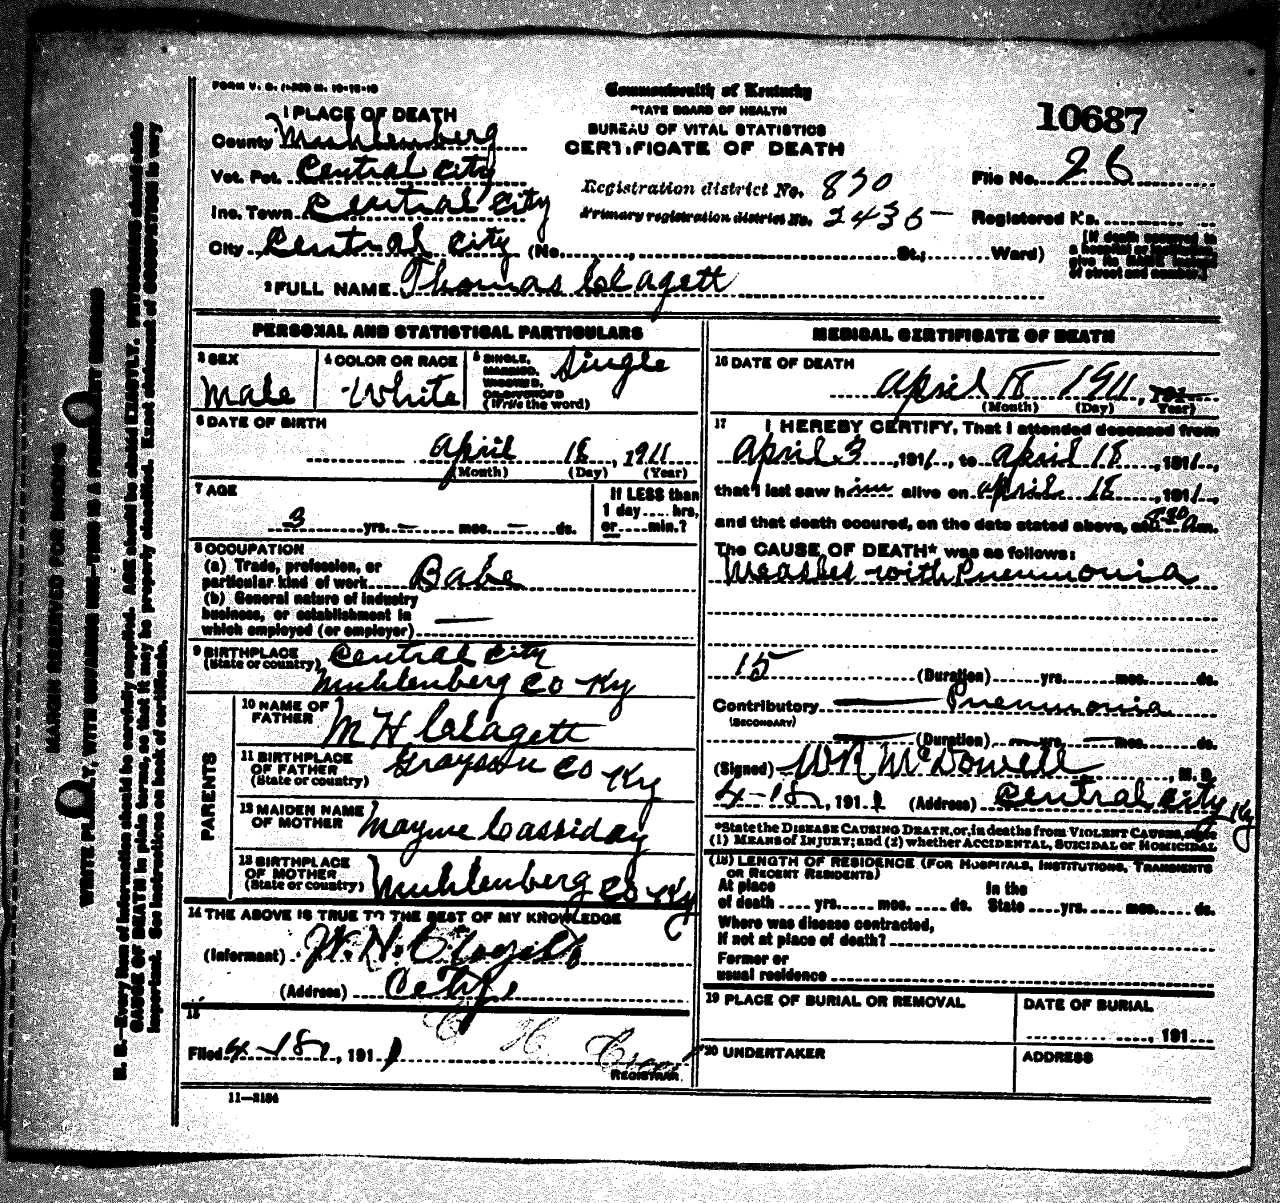 FORM V. S. 1-200 M. 10-18-10
Commonwealth of Kentucky
STATE BOARD OF HEALTH
BUREAU OF VITAL STATISTICS
CERTIFICATE OF DEATH
10687
1 PLACE OF DEATH
County Muhlenberg
Vot. Pct. Central City
Inc. Town Central City
City Central City (No. , St.; Ward)
Registration district No. 870
Primary registration district No. 2435
File No. 26
Registered No.
[If death occurred in
a hospital or institution,
give its NAME instead
of street and number.]
2 FULL NAME Thomas Clagett
PERSONAL AND STATISTICAL PARTICULARS
3 SEX
Male
4 COLOR OR RACE
White
5 SINGLE,
MARRIED,
WIDOWED,
OR DIVORCED
(Write the word)
Single
6 DATE OF BIRTH
April 18, 1911
(Month) (Day) (Year)
7 AGE
3 yrs. — mos. — ds.
If LESS than
1 day .... hrs,
or .... min.?
8 OCCUPATION
(a) Trade, profession, or
particular kind of work Babe
(b) General nature of industry
business, or establishment in
which employed (or employer) —
9 BIRTHPLACE
(State or country) Central City
Muhlenberg Co Ky
PARENTS
10 NAME OF
FATHER M H Clagett
11 BIRTHPLACE
OF FATHER
(State or country) Grayson Co Ky
12 MAIDEN NAME
OF MOTHER Mayme Cassiday
13 BIRTHPLACE
OF MOTHER
(State or country) Muhlenberg Co Ky
14 THE ABOVE IS TRUE TO THE BEST OF MY KNOWLEDGE
(Informant) W. H. Clagett
(Address) City
15
Filed 4-18, 1911
REGISTRAR
11—3184
MEDICAL CERTIFICATE OF DEATH
16 DATE OF DEATH
April 18 1911, 191
(Month) (Day) Year)
17 I HEREBY CERTIFY, That I attended deceased from
April 3, 1911, to April 18, 1911,
that I last saw him alive on April 18, 1911,
and that death occured, on the date stated above, at 8-30 a m.
The CAUSE OF DEATH* was as follows:
Measles with Pneumonia
15 (Duration) yrs. mos. ds.
Contributory Pneumonia
(SECONDARY)
(Duration) yrs. mos. ds.
(Signed) W R McDowell, M. D.
4-18, 1911 (Address) Central City Ky
*State the DISEASE CAUSING DEATH, or, in deaths from VIOLENT CAUSES, state
(1) MEANS OF INJURY; and (2) whether ACCIDENTAL, SUICIDAL or HOMICIDAL
(18) LENGTH OF RESIDENCE (FOR HOSPITALS, INSTITUTIONS, TRANSIENTS
OR RECENT RESIDENTS)
At place In the
of death .... yrs. .... mos. .... ds. State .... yrs. .... mos. .... ds.
Where was disease contracted,
if not at place of death?
Former or
usual residence
19 PLACE OF BURIAL OR REMOVAL
DATE OF BURIAL
, 191
20 UNDERTAKER
ADDRESS
MARGIN RESERVED FOR BINDING
WRITE PLAINLY, WITH UNFADING INK—THIS IS A PERMANENT RECORD
N. B.—Every item of information should be carefully supplied. AGE should be stated EXACTLY. PHYSICIANS should state
CAUSE OF DEATH in plain terms, so that it may be properly classified. Exact statement of OCCUPATION is very
important. See instructions on back of certificate.